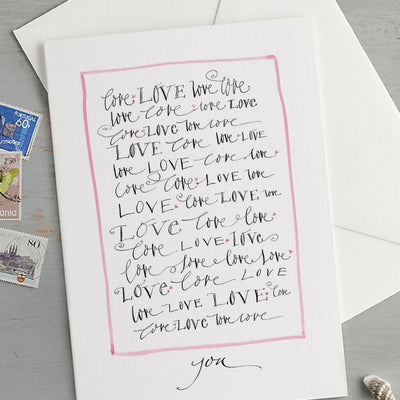 love LOVE love love
love love love LOVE
love LOVE love love
LOVE love love LOVE
love LOVE love love
love love LOVE love
LOVE love LOVE love
LOVE love love
love LOVE love
love love love love
LOVE love LOVE
love LOVE LOVE love
love LOVE love love
you
60
2.50
80